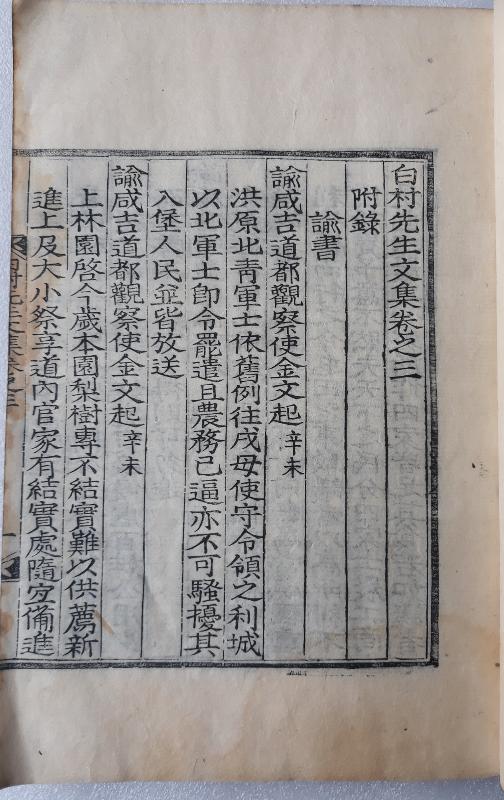 白村先生文集卷之三
附錄
諭書
諭咸吉道都觀察使金文起 辛未
洪原北靑軍士依舊例往戍毋使守令領之利城
以北軍士卽令罷遣且農務已逼亦不可騷擾其
入堡人民並皆放送
諭咸吉道都觀察使金文起 辛未
上林園啓今歲本園梨樹專不結實難以供薦新
進上及大小祭享道內官家有結實處隨宜備進